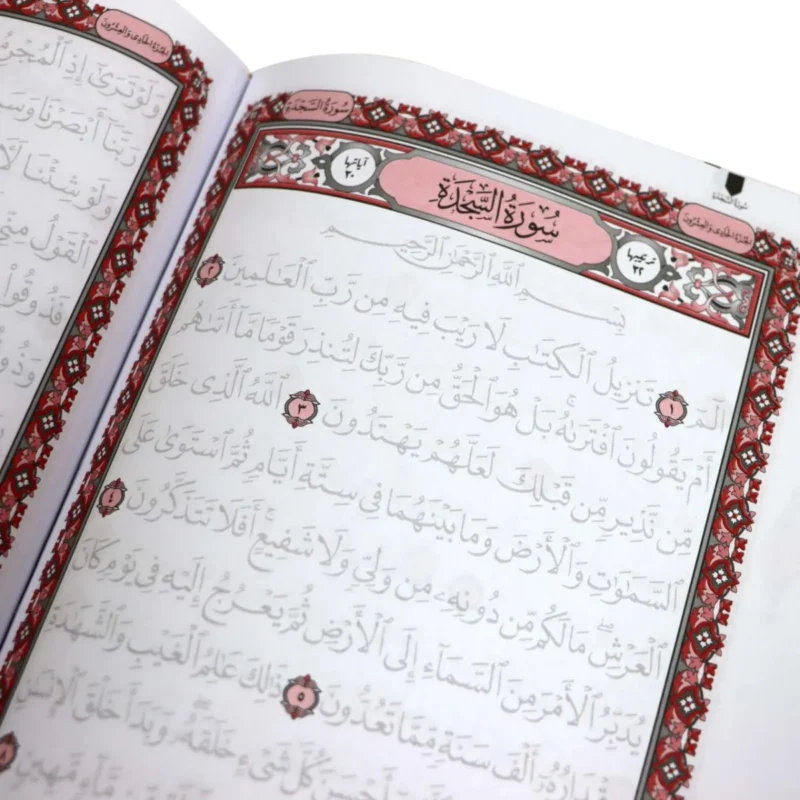 سُورَةُ السَّجْدَةِ
الجُزْءُ الحَادِي وَالعِشْرُونَ
سُورَةُ السَّجْدَةِ
تَرْتِيبُهَا ٣٢
سُورَةُ السَّجْدَةِ
آيَاتُهَا ٣٠
بِسْمِ ٱللَّهِ ٱلرَّحْمَٰنِ ٱلرَّحِيمِ
الٓمٓ ١ تَنزِيلُ ٱلْكِتَٰبِ لَا رَيْبَ فِيهِ مِن رَّبِّ ٱلْعَٰلَمِينَ ٢
أَمْ يَقُولُونَ ٱفْتَرَىٰهُۚ بَلْ هُوَ ٱلْحَقُّ مِن رَّبِّكَ لِتُنذِرَ قَوْمًا مَّآ أَتَىٰهُم
مِّن نَّذِيرٍ مِّن قَبْلِكَ لَعَلَّهُمْ يَهْتَدُونَ ٣ ٱللَّهُ ٱلَّذِى خَلَقَ
ٱلسَّمَٰوَٰتِ وَٱلْأَرْضَ وَمَا بَيْنَهُمَا فِى سِتَّةِ أَيَّامٍ ثُمَّ ٱسْتَوَىٰ عَلَى
ٱلْعَرْشِۖ مَا لَكُم مِّن دُونِهِۦ مِن وَلِىٍّ وَلَا شَفِيعٍۚ أَفَلَا تَتَذَكَّرُونَ ٤
يُدَبِّرُ ٱلْأَمْرَ مِنَ ٱلسَّمَآءِ إِلَى ٱلْأَرْضِ ثُمَّ يَعْرُجُ إِلَيْهِ فِى يَوْمٍ كَانَ
مِقْدَارُهُۥٓ أَلْفَ سَنَةٍ مِّمَّا تَعُدُّونَ ٥ ذَٰلِكَ عَٰلِمُ ٱلْغَيْبِ وَٱلشَّهَٰدَةِ
أَحْسَنَ كُلَّ شَىْءٍ خَلَقَهُۥۖ وَبَدَأَ خَلْقَ ٱلْإِنسَٰنِ
مَّآءٍ مَّهِينٍ
الجُزْءُ الحَادِي وَالعِشْرُونَ
وَلَوْ تَرَىٰٓ إِذِ ٱلْمُجْرِ
رَبَّنَآ أَبْصَرْنَا وَسَمِ
وَلَوْ شِئْنَا لَأ
ٱلْقَوْلُ مِنِّى
فَذُوقُوا۟
وَذُو